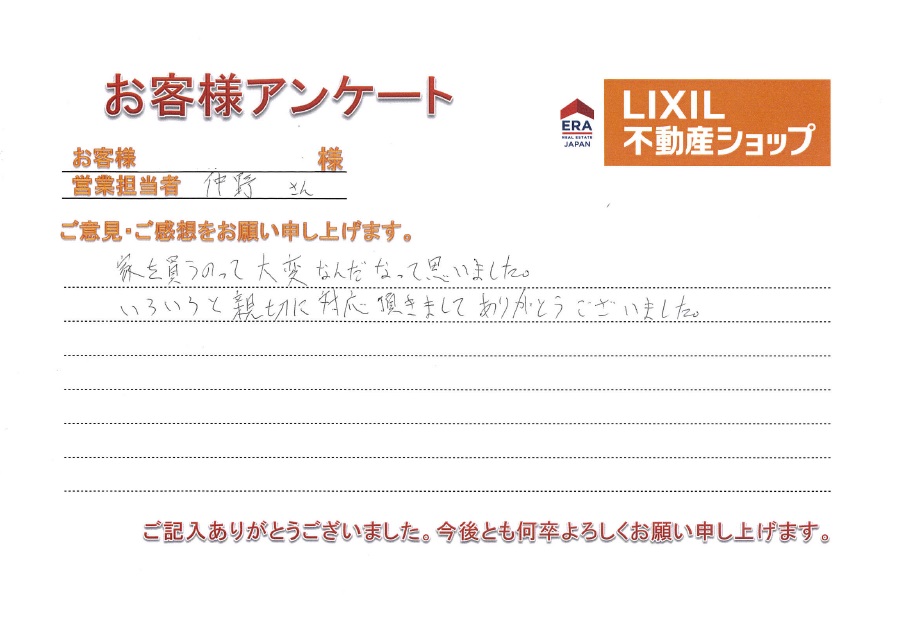 お客様アンケート
ERA
REAL ESTATE
JAPAN
LIXIL
不動産ショップ
お客様 様
営業担当者 仲野 さん
ご意見・ご感想をお願い申し上げます。
家を買うのって大変なんだなって思いました。
いろいろと親切に対応頂きましてありがとうございました。
ご記入ありがとうございました。今後とも何卒よろしくお願い申し上げます。